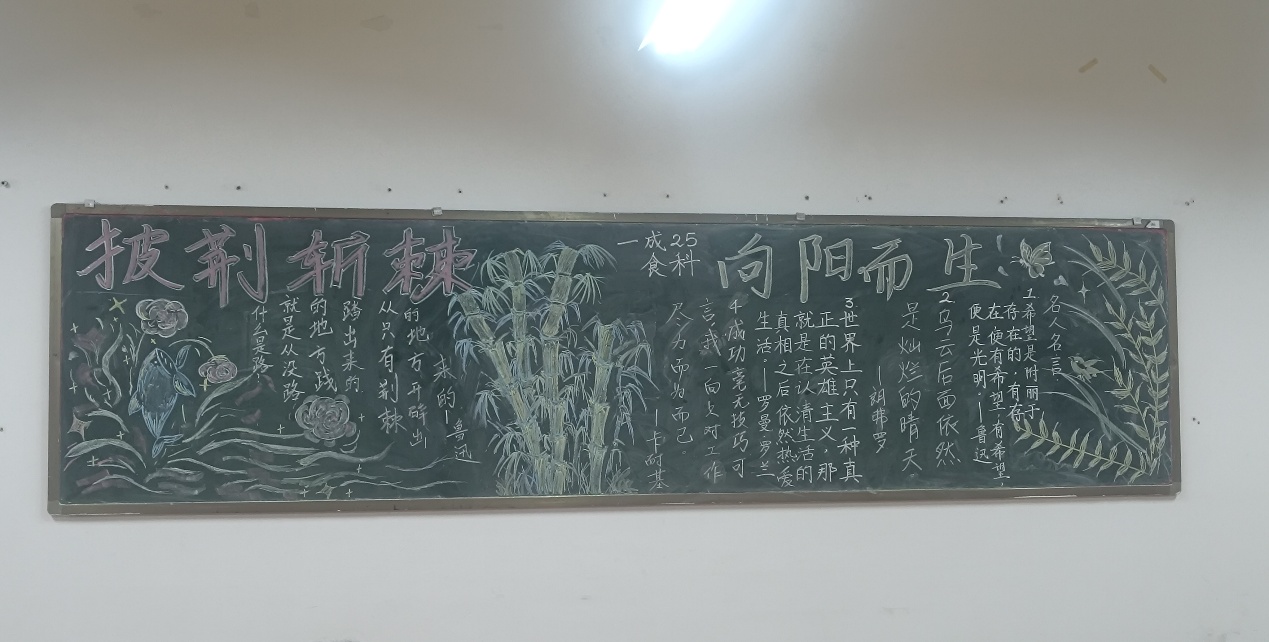 披荆斩棘
什么是路
就是从没路
的地方践
踏出来的
从只有荆棘
的地方开辟出
来的
—鲁迅
一成25
食科
向阳而生!
名人名言
1.希望是附丽于
存在的,有存
在便有希望,有希望,
便是光明.—鲁迅
2乌云后面依然
是灿烂的晴天
—朗弗罗
3世界上只有一种真
正的英雄主义,那
就是在认清生活的
真相之后依然热爱
生活.—罗曼·罗兰
4成功毫无技巧可
言我一向对工作
尽力而为而已。
—卡耐基